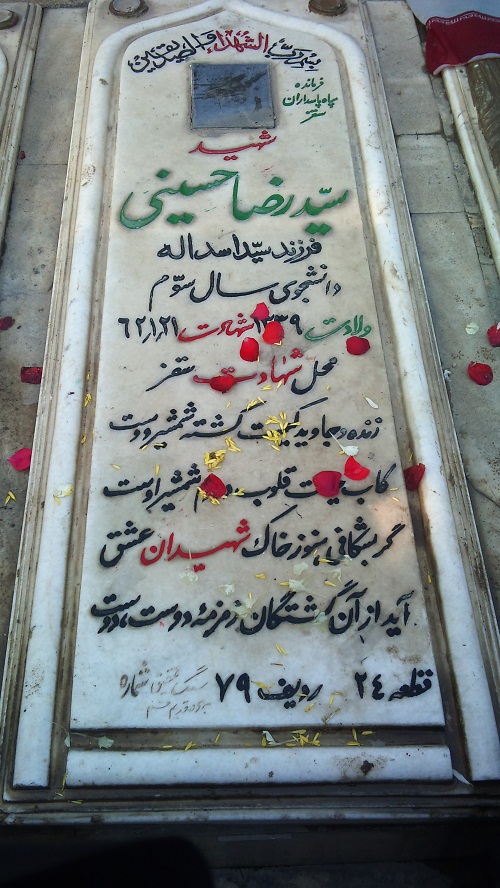 بسم رب الشهداء والصدیقین
فرمانده
سپاه پاسداران
سقز
شهید
سیّد رضا حسینی
فرزند سیّد اسد اله
دانشجوی سال سوّم
ولادت ۱۳۳۹ شهادت ۶۲٫۱٫۲۱
محل شهادت سقز
زنده و جاوید کیست کشته شمشیر دوست
کاب حیات قلوب در دم شمشیر اوست
گر بشکافی هنوز خاک شهیدان عشق
آید از آن کشتگان زمزمهٔ دوست، دوست
قطعه ۲۴ ردیف ۷۹ شماره